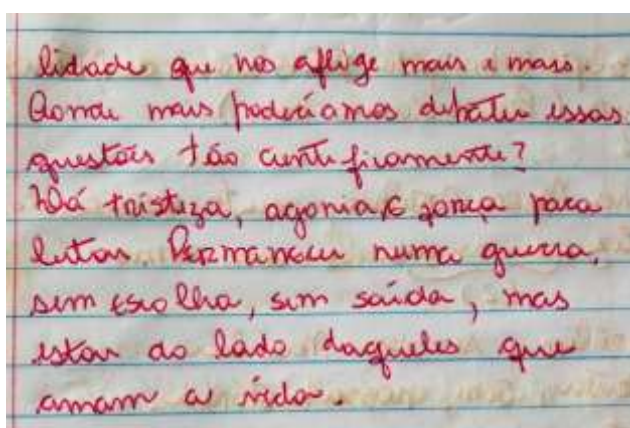 lidade que nos aflige mais e mais.
Aonde mais poderíamos debater essas
questões tão cientificamente?
Dá tristeza, agonia, e força para
lutar. Permanecer numa guerra,
sem escolha, sem saída, mas
estar do lado daqueles que
amam a vida.